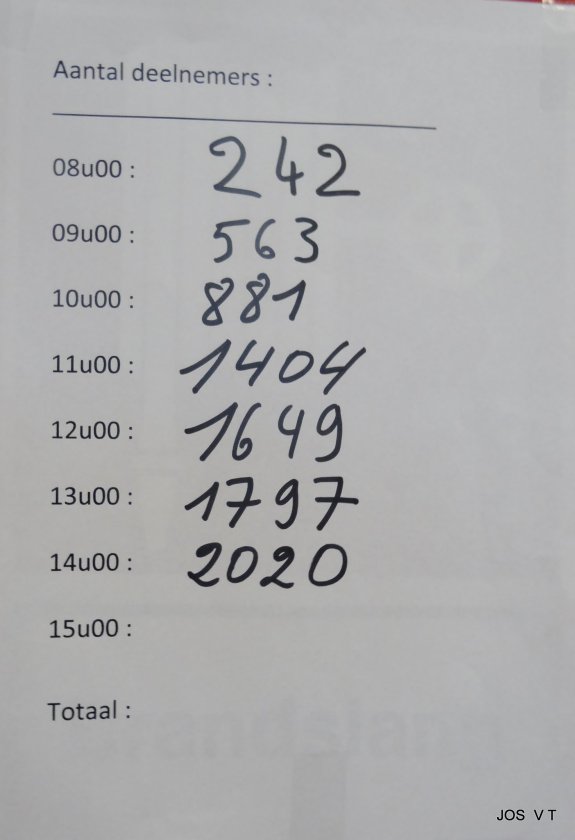 Aantal deelnemers :
08u00 : 242
09u00 : 563
10u00 : 881
11u00 : 1404
12u00 : 1649
13u00 : 1797
14u00 : 2020
15u00 :
Totaal :
JOS V T